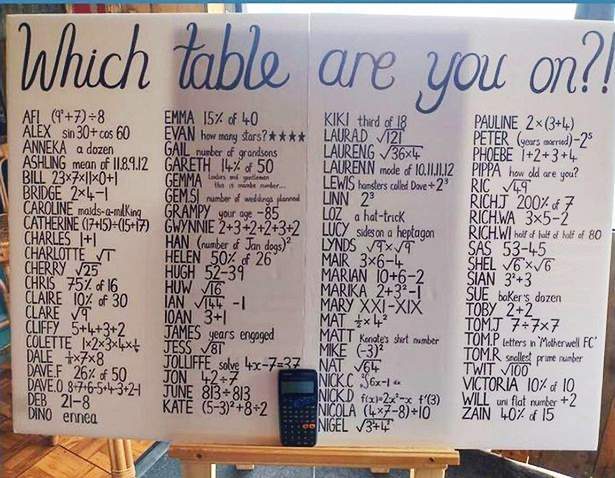 Which table are you on?!
AFI (9²+7)÷8
ALEX sin30+cos60
ANNEKA a dozen
ASHLING mean of 11.8.9.12
BILL 23×7×11×0+1
BRIDGE 2×4-1
CAROLINE maids-a-milking
CATHERINE (17+15)÷(15+17)
CHARLES 1+1
CHARLOTTE √1
CHERRY √25
CHRIS 75% of 16
CLAIRE 10% of 30
CLARE √9
CLIFFY 5+4+3+2
COLETTE
DALE
DAVE.F 26% of 50
DAVE.O 8+7+6-5+4-3+2-1
DEB 21-8
DINO ennea
EMMA 15% of 40
EVAN how many stars? ★★★★
GAIL number of grandsons
GARETH 14% of 50
GEMMA Ladies and gentlemen this is mambo number...
GEM.SI number of weddings planned
GRAMPY your age -85
GWYNNIE 2+3+2+2+3+2
HAN (number of Jan dogs)²
HELEN 50% of 26
HUGH 52-39
HUW √16
IAN √144 -1
IOAN 3+1
JAMES years engaged
JESS √81
JOLLIFFE solve 4x-7=37
JON 42÷7
JUNE 813÷813
KATE (5-3)²+8÷2
KIKI third of 18
LAURA.D √121
LAUREN.G √36×4
LAUREN.N mode of 10.11.11.12
LEWIS hamsters called Dave÷2³
LINN 2³
LOZ a hat-trick
LUCY sides on a heptagon
LYNDS √9×√9
MAIR 3×6-4
MARIAN 10+6-2
MARIKA 2+3²-1
MARY XXI-XIX
MAT ½×4²
MATT shirt number
MIKE (-3)²
NAT √64
NICK.C
NICK.D f(x)=2x²-x f'(3)
NICOLA (4×7-8)÷10
NIGEL
PAULINE 2×(3+4)
PETER (years married)-2⁵
PHOEBE 1+2+3+4
PIPPA how old are you?
RIC √49
RICH.J 200% of 7
RICH.WA 3×5-2
RICH.WI half of half of half of 80
SAS 53-45
SHEL √6×√6
SIAN 3²+3
SUE baker's dozen
TOBY 2+2
TOM.J 7÷7×7
TOM.P letters in 'Motherwell FC'
TOM.R smallest prime number
TWIT √100
VICTORIA 10% of 10
WILL uni flat number +2
ZAIN 40% of 15